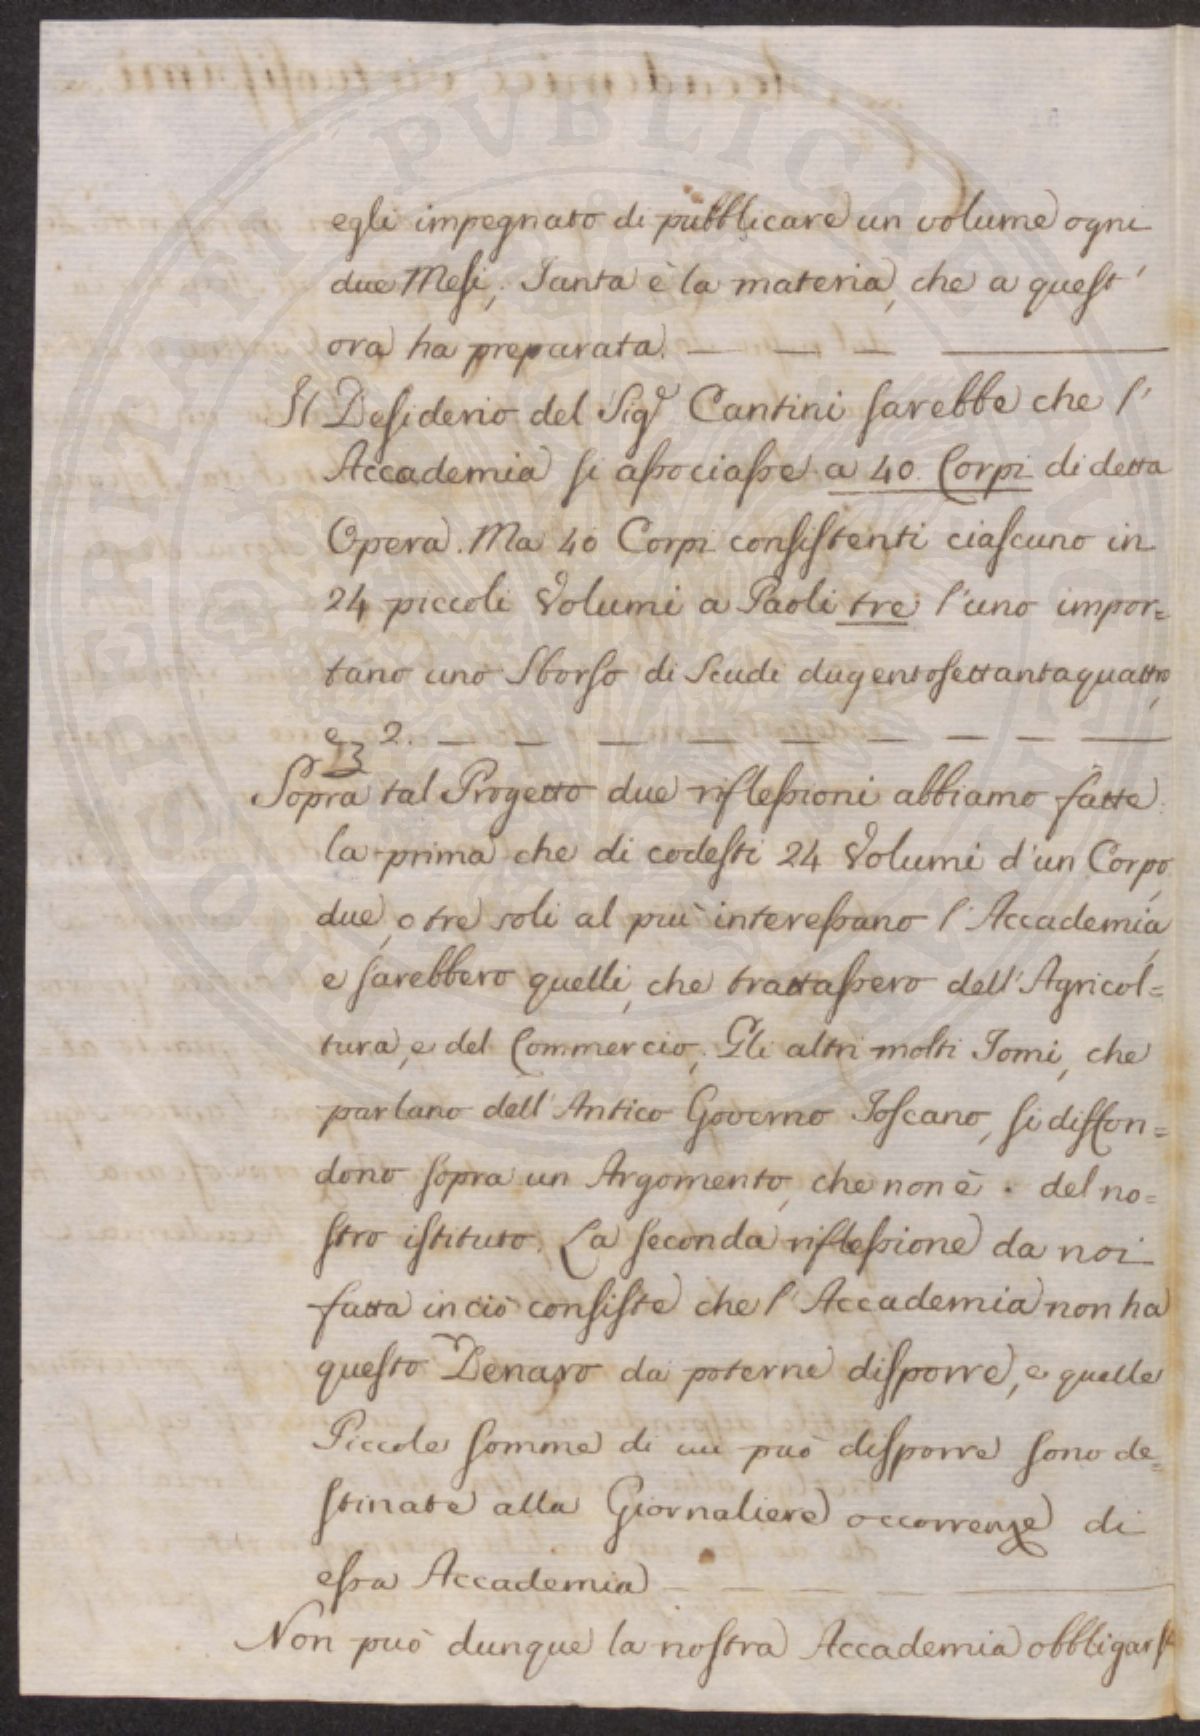 egli impegnato di pubblicare un volume ogni
due Mesi, Tanta è la materia, che a quest'
ora ha preparata. — — — ———
Il Desiderio del Sig.e Cantini sarebbe che l'
Accademia si associasse a 40. Corpi di detta
Opera. Ma 40 Corpi consistenti ciascuno in
24 piccoli Volumi a Paoli tre l'uno impor=
tano uno Sborso di Scudi dugentosettantaquattro,
e 2. — — — — — — — — ——
Sopra tal Progetto due riflessioni abbiamo fatte.
la prima che di codesti 24 Volumi d'un Corpo,
due, o tre soli al più interessano l'Accademia,
e sarebbero quelli, che trattassero dell'Agricol=
tura, e del Commercio. Gli altri molti Tomi, che
parlano dell'Antico Governo Toscano, si diffon=
dono sopra un Argomento, che non è . del no=
stro istituto. La seconda riflessione da noi
fatta in ciò consiste che l'Accademia non ha
questo Denaro da poterne disporre, e quelle
Piccole somme di cui può disporre sono de=
stinate alla Giornaliere occorrenze di
essa Accademia — — — ———
Non può dunque la nostra Accademia obbligarsi
PROSPERITATI PVBLICAE